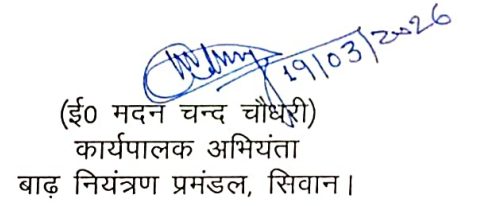 19/03/2026
(ई0 मदन चन्द चौधरी)
कार्यपालक अभियंता
बाढ़ नियंत्रण प्रमंडल, सिवान।